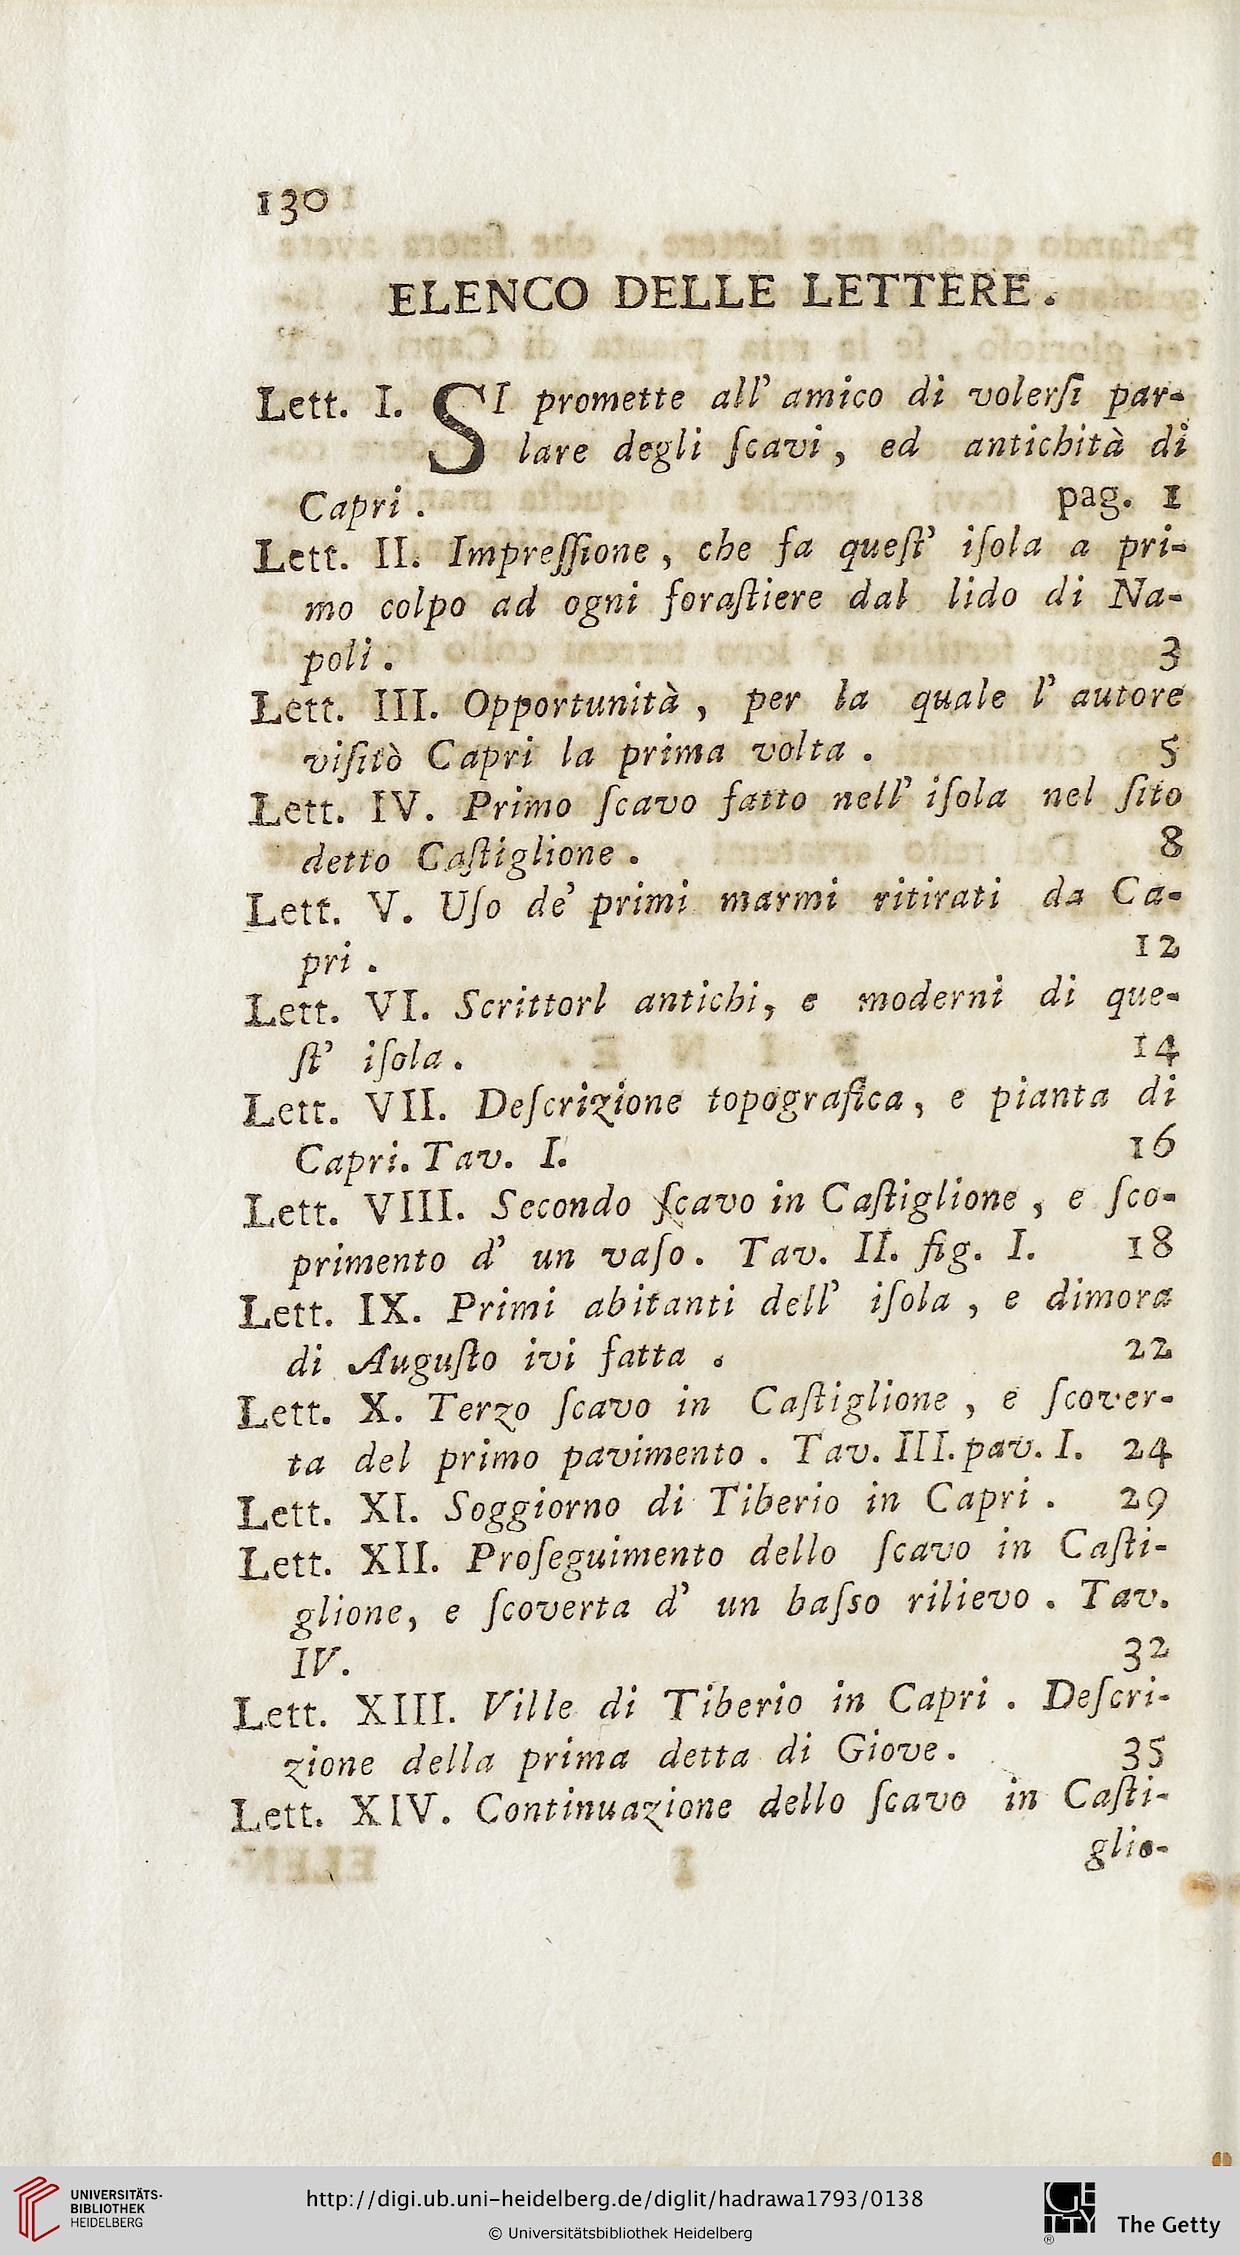 130
ELENCO DELLE LETTERE.
Lett. I. SI promette all' amico di volerſi par-
lare degli ſcavi, ed antichità di
Capri. pag. 1
Lett. II. Impreſſione, che fa queſt' iſola a pri-
mo colpo ad ogni foraſtiere dal lido di Na-
poli. 3
Lett. III. Opportunità, per la quale l' autore
viſitò Capri la prima volta. 5
Lett. IV. Primo ſcavo fatto nell' iſola nel ſito
detto Caſtiglione. 8
Lett. V. Uſo de' primi marmi ritirati da Ca-
pri. 12
Lett. VI. Scrittorl antichi, e moderni di que-
ſt' iſola. 14
Lett. VII. Deſcrizione topografica, e pianta di
Capri. Tav. I. 16
Lett. VIII. Secondo ſcavo in Caſtiglione, e ſco-
primento d' un vaſo. Tav. II. fig. I. 18
Lett. IX. Primi abitanti dell' iſola, e dimora
di Auguſto ivi fatta. 22
Lett. X. Terzo ſcavo in Caſtiglione, e ſcover-
ta del primo pavimento. Tav. III. pav. I. 24
Lett. XI. Soggiorno di Tiberio in Capri. 29
Lett. XII. Proſeguimento dello ſcavo in Caſti-
glione, e ſcoverta d' un baſso rilievo. Tav.
IV. 32
Lett. XIII. Ville di Tiberio in Capri. Deſcri-
zione della prima detta di Giove. 35
Lett. XIV. Continuazione dello ſcavo in Caſti-
glio-
UNIVERSITÄTS-
BIBLIOTHEK
HEIDELBERG
http://digi.ub.uni-heidelberg.de/diglit/hadrawa1793/0138
© Universitätsbibliothek Heidelberg
GETTY
The Getty